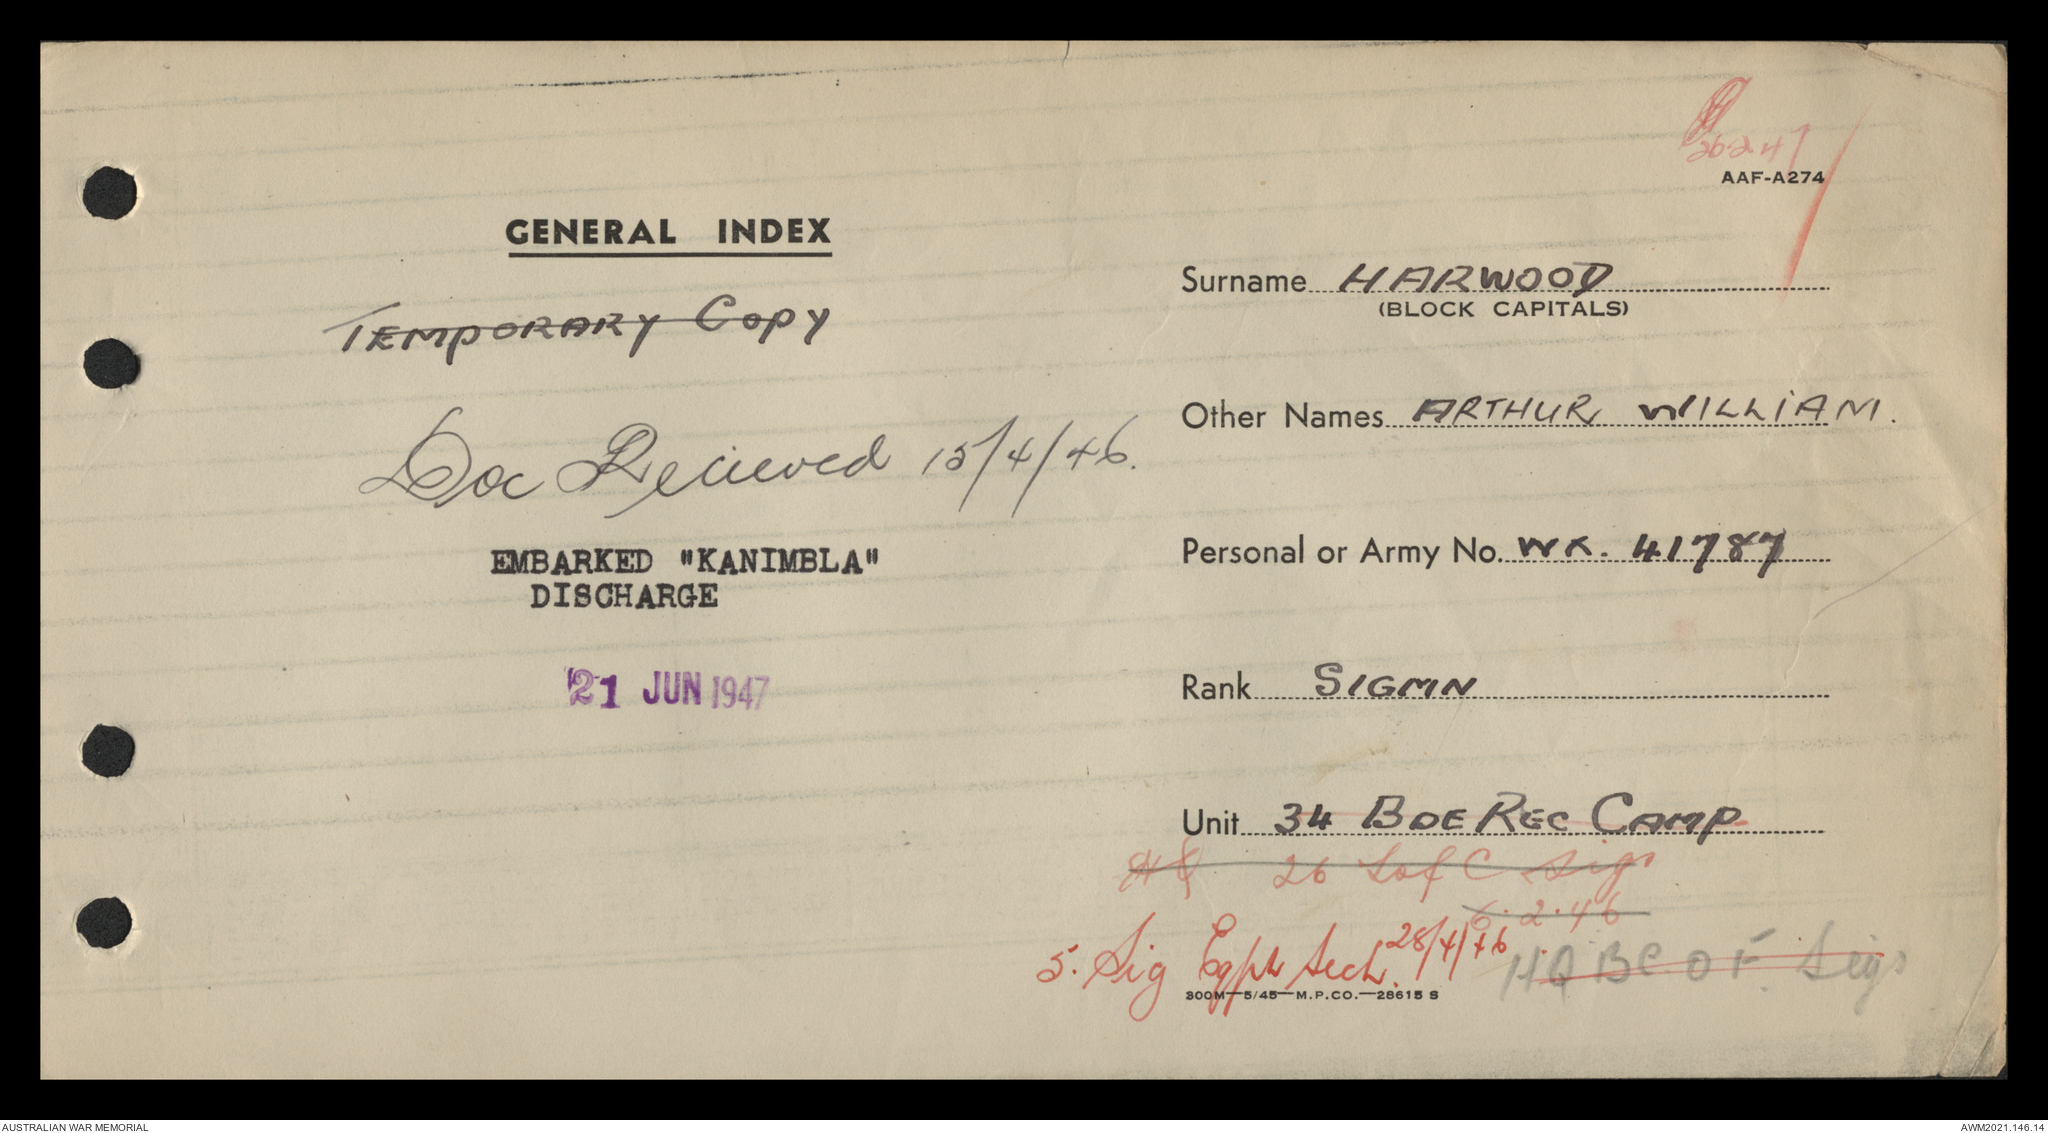 26.2.47
AAF-A274
GENERAL INDEX
TEMPORARY COPY
Doc Recieved 15/4/46.
EMBARKED "KANIMBLA"
DISCHARGE
21 JUN 1947
Surname HARWOOD
(BLOCK CAPITALS)
Other Names ARTHUR WILLIAM.
Personal or Army No. WX. 41787
Rank SIGMN
Unit 34 BDE REC CAMP
HQ 26 L of C Sigs
6.2.46
5. Sig Eqpt Sech. 28/4/46
HQ BCOF. Sigs
300M—5/45—M.P.CO.—28615 S
AUSTRALIAN WAR MEMORIAL
AWM2021.146.14